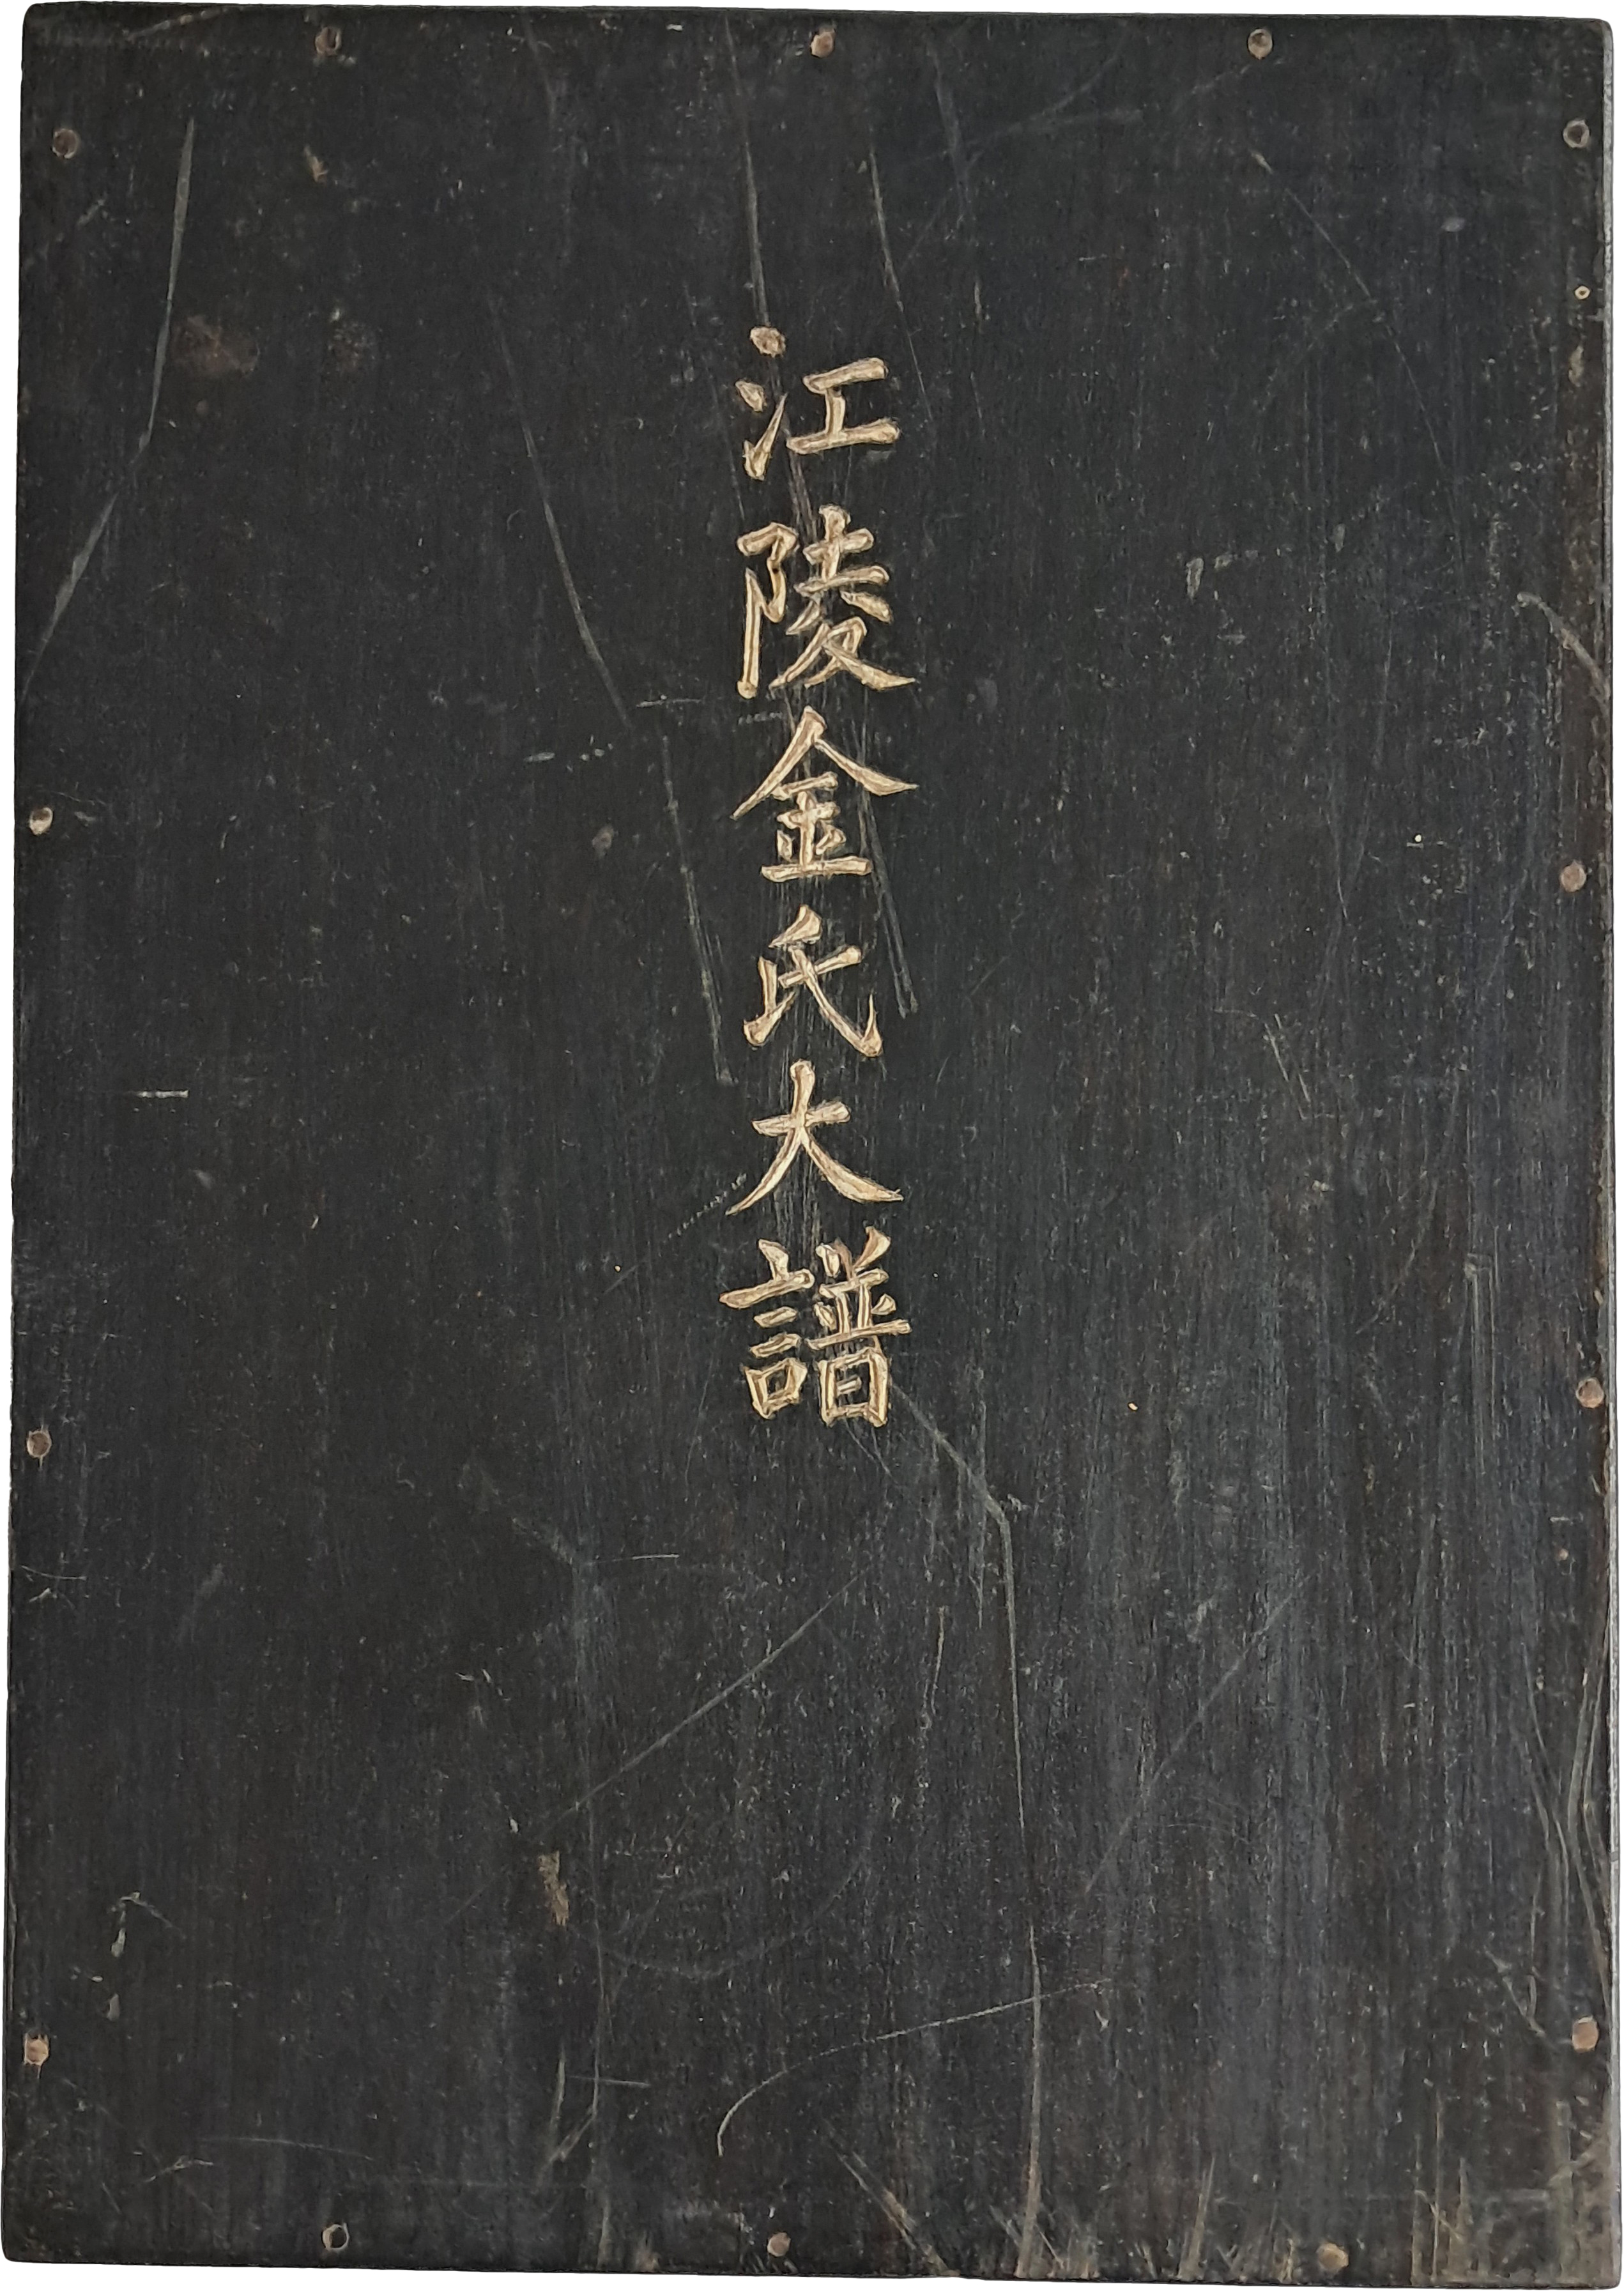 江陵金氏大譜